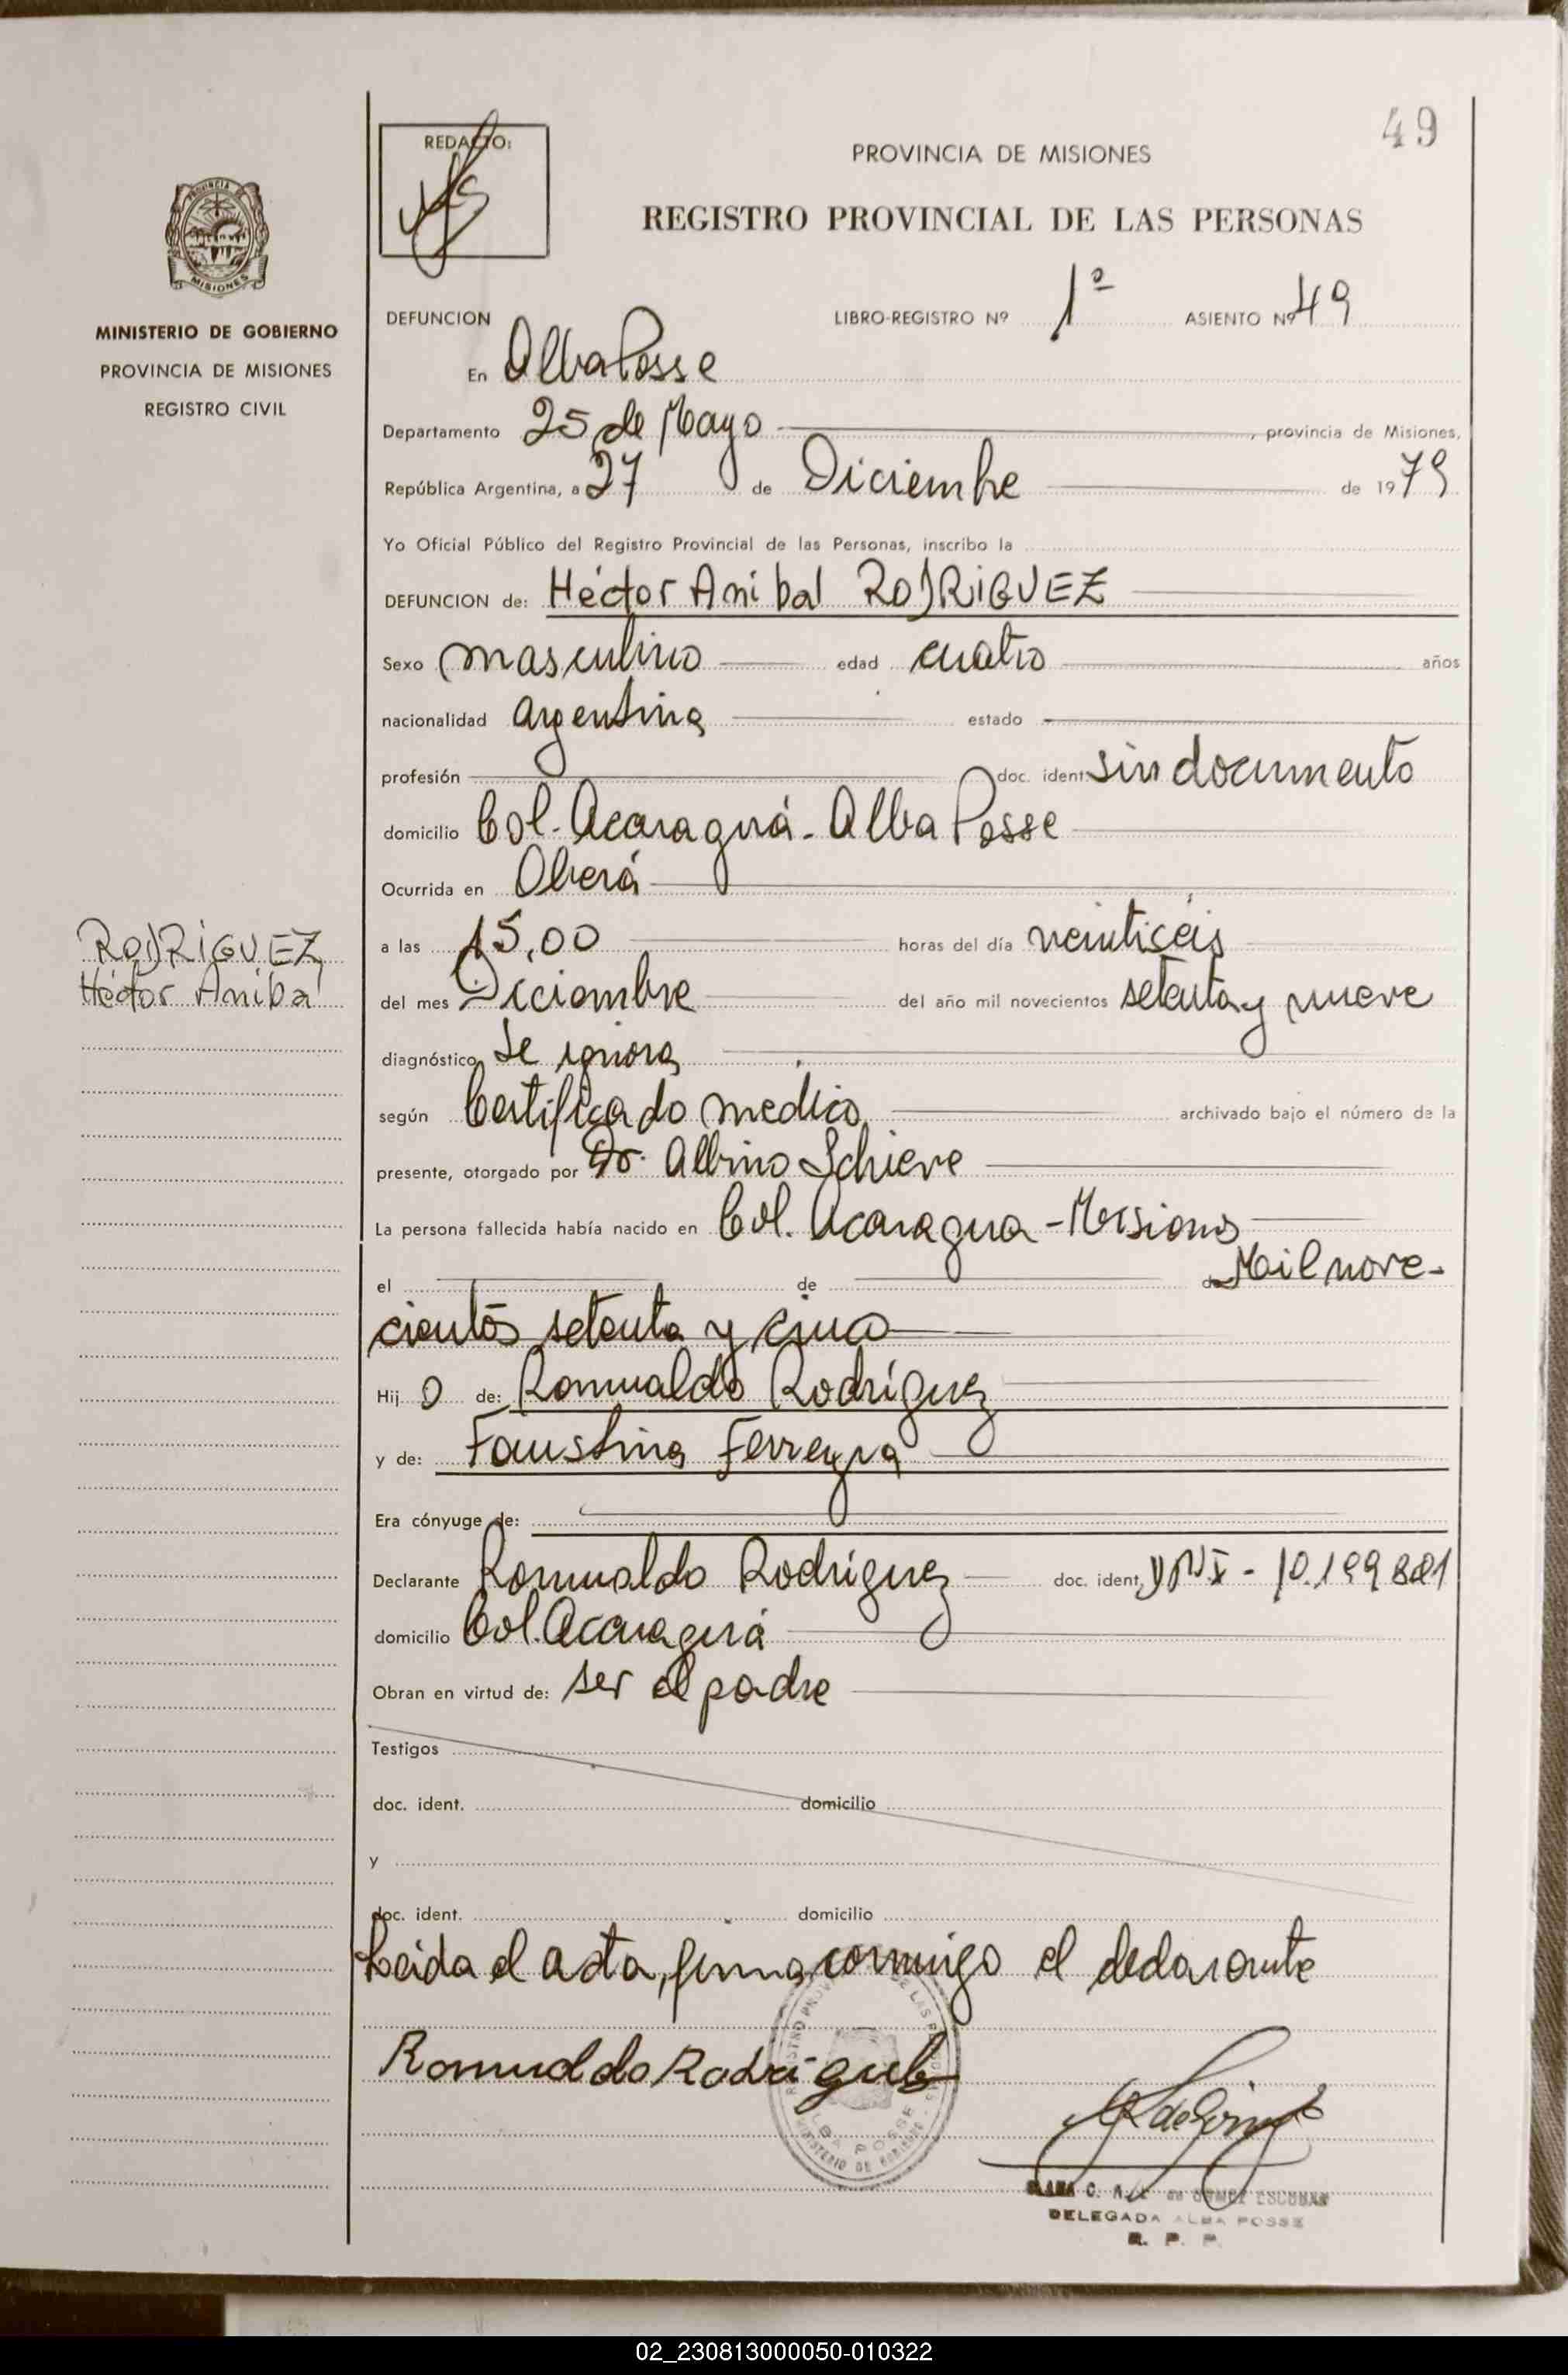 49
REDACTO:
PROVINCIA DE MISIONES
REGISTRO PROVINCIAL DE LAS PERSONAS
PROVINCIA DE
MISIONES
MINISTERIO DE GOBIERNO
PROVINCIA DE MISIONES
REGISTRO CIVIL
DEFUNCION LIBRO-REGISTRO Nº 1º ASIENTO Nº 49
En Alba Posse
Departamento 25 de Mayo, provincia de Misiones,
República Argentina, a 27 de Diciembre de 1979
Yo Oficial Público del Registro Provincial de las Personas, inscribo la
DEFUNCION de: Héctor Anibal RODRIGUEZ
Sexo masculino edad cuatro años
nacionalidad argentina estado
profesión doc. ident. sin documento
domicilio Col. Acaraguá - Alba Posse
Ocurrida en Oberá
RODRIGUEZ
Héctor Anibal
a las 15,00 horas del día veintiseis
del mes Diciembre del año mil novecientos setenta y nueve
diagnóstico Se ignora
según Certificado medico archivado bajo el número de la
presente, otorgado por Dr. Albino Schieve
La persona fallecida había nacido en Col. Acaragua - Misiones
el de de Mil nove-
cientos setenta y cinco
Hij o de: Romualdo Rodríguez
y de: Faustina Ferreyra
Era cónyuge de:
Declarante Romualdo Rodriguez doc. ident. DNI - 10.199.881
domicilio Col. Acaraguá
Obran en virtud de: ser el padre
Testigos
doc. ident. domicilio
y
doc. ident. domicilio
Leida el acta, firma conmigo el declarante
Romualdo Rodriguez
ALBA POSSE
MINISTERIO DE GOBIERNO
C. A. de GOMEZ ESCOBAR
DELEGADA ALBA POSSE
R. P. P.
02_230813000050-010322